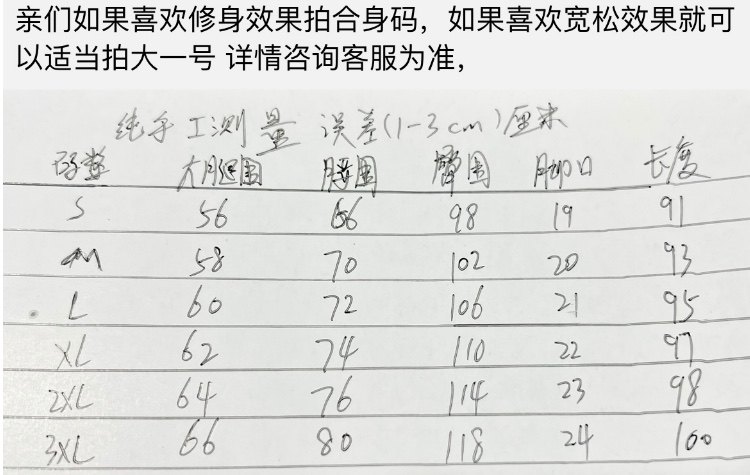 亲们如果喜欢修身效果拍合身码，如果喜欢宽松效果就可
以适当拍大一号 详情咨询客服为准，
纯手工测量 误差(1-3cm)厘米
码数 大腿围 腰围 臀围 脚口 长度
S 56 66 98 19 91
M 58 70 102 20 93
L 60 72 106 21 95
XL 62 74 110 22 97
2XL 64 76 114 23 98
3XL 66 80 118 24 100